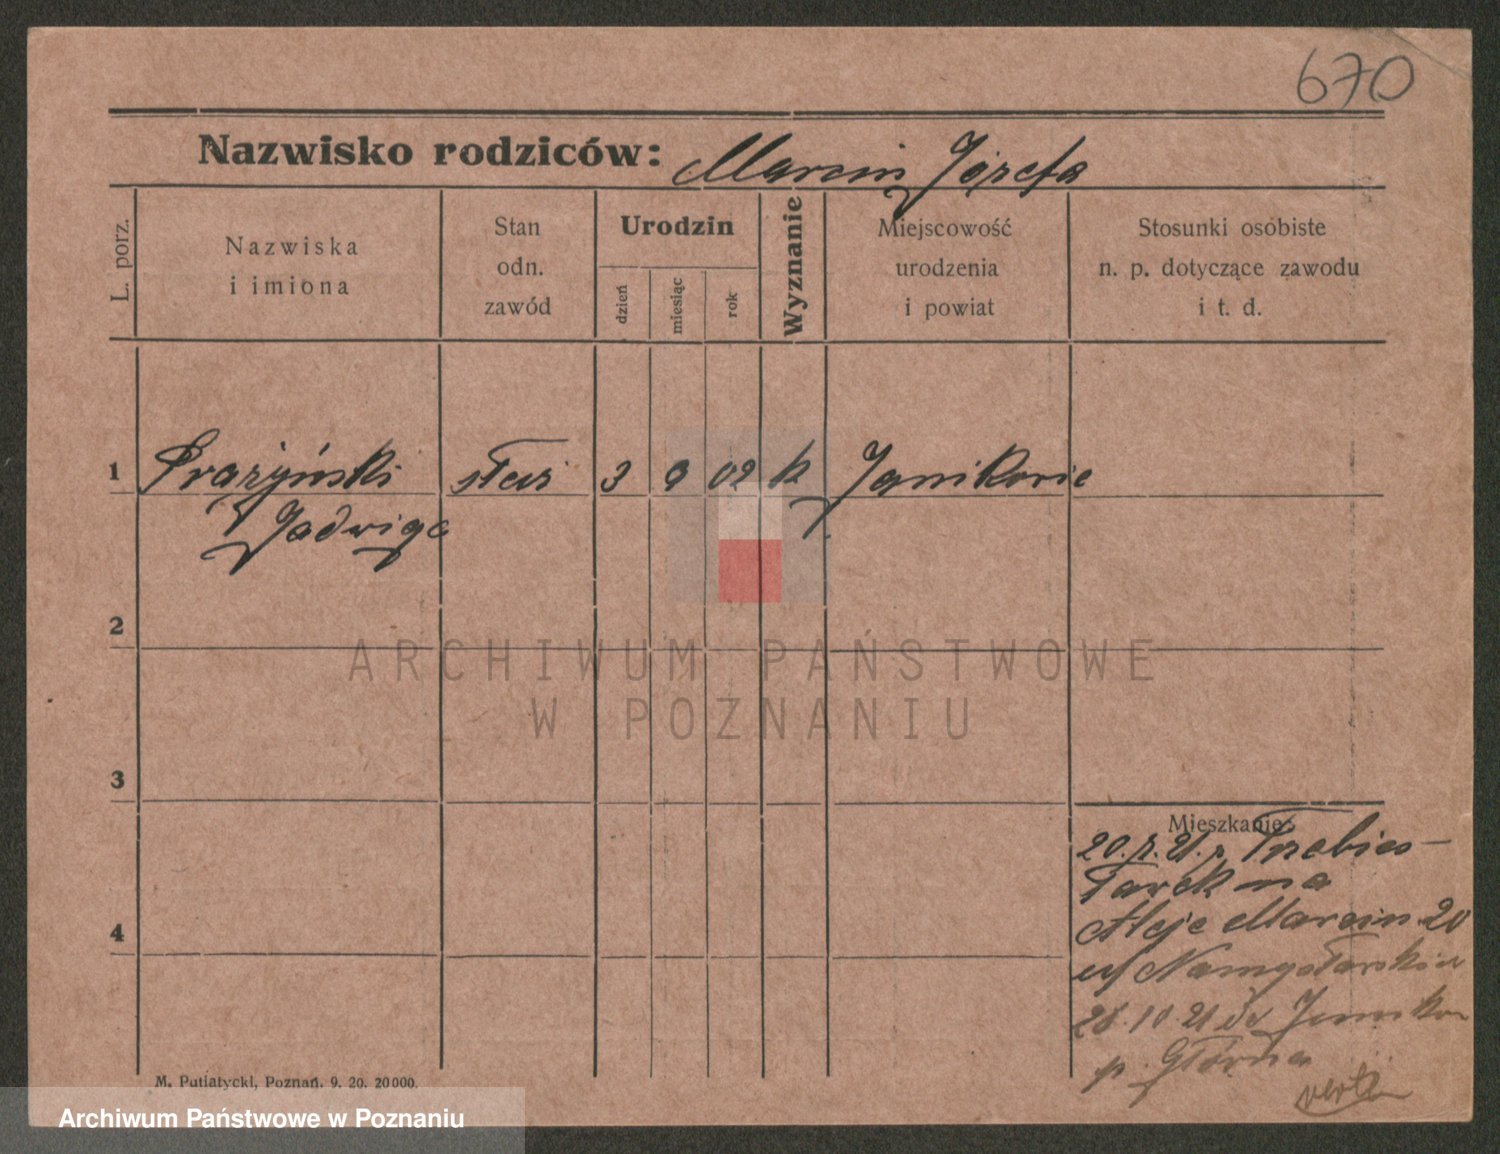 670
Nazwisko rodziców: Marcin Józefa
L. porz.
Nazwiska
i imiona
Stan
odn.
zawód
Urodzin
dzień
miesiąc
rok
Wyznanie
Miejscowość
urodzenia
i powiat
Stosunki osobiste
n. p. dotyczące zawodu
i t. d.
1 służ 3 9 02 k Janikowie
Jadwiga
2
3
4
Mieszkanie:
20. 21. p. Trzebies-
na
Aleje Marcin. 20
28.10.21 do Janikow
p. Główna
M. Putiatycki, Poznań. 9. 20. 20000.
ARCHIWUM PAŃSTWOWE
W POZNANIU
Archiwum Państwowe w Poznaniu